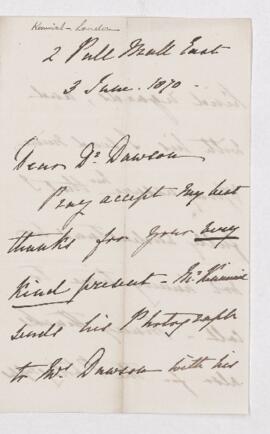 Kinnaird - London
2 Pall Mall East
3 June. 1870
Dear Dr. Dawson
Pray accept my best
thanks for your very
kind present - Mr Kinnaird
sends his Photograph
to Mrs Dawson with his